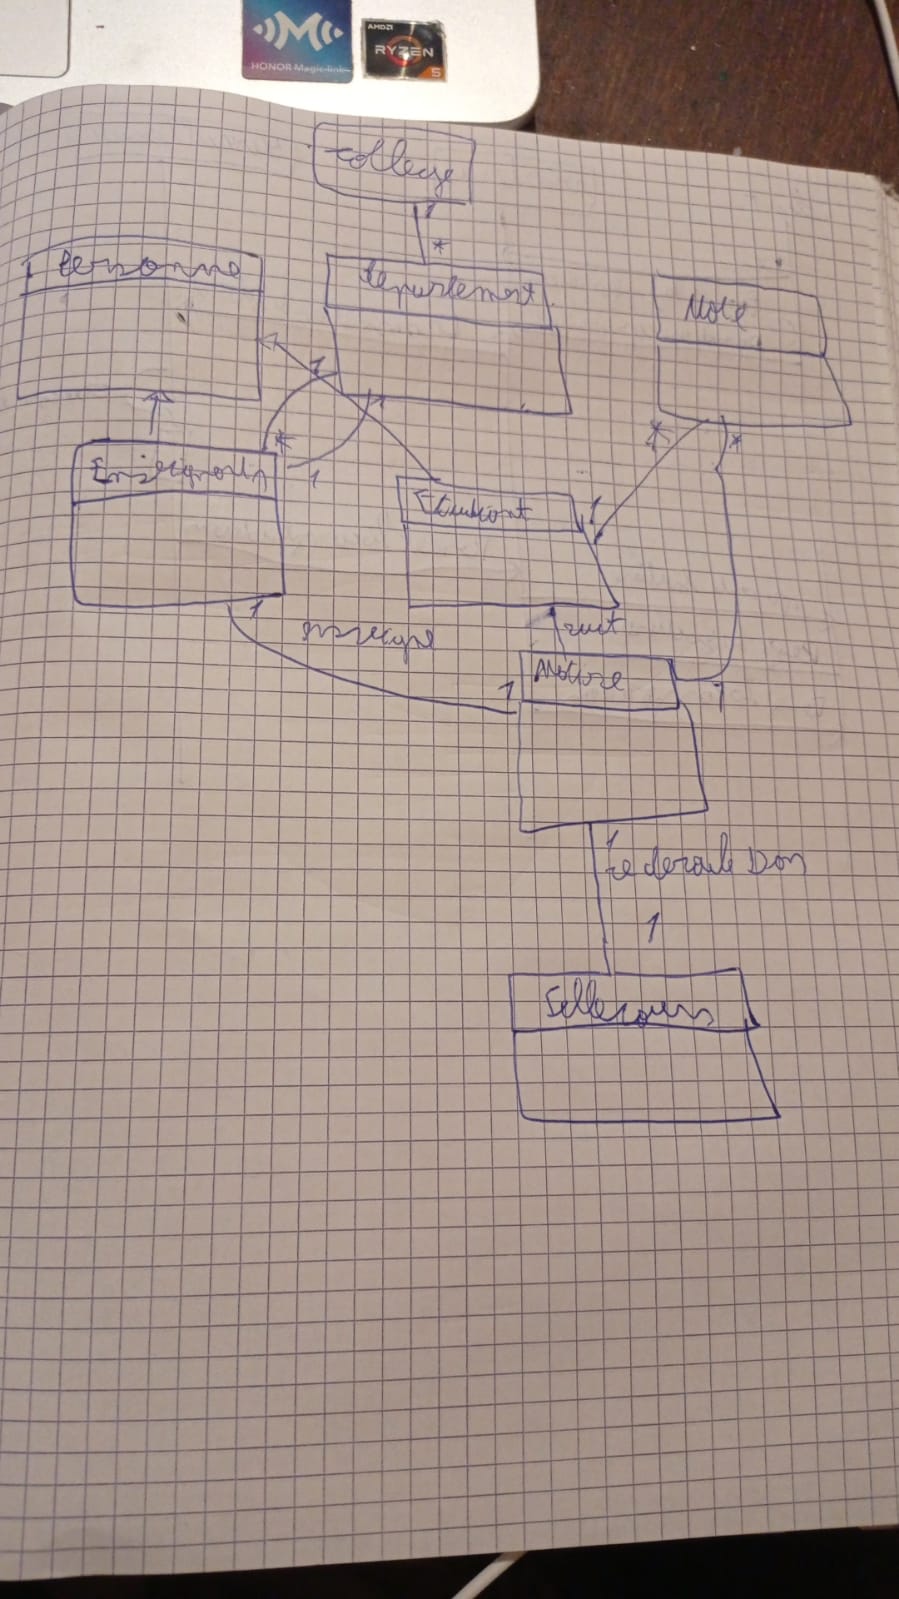 HONOR Magic-link
AMD
RYZEN
5
college
1
*
Personne
departement
Note
1
*
1
*
*
Enseignants
1
Etudiant
1
1
suit
1
Matiere
1
1
se deroule Dans
1
Sallecours